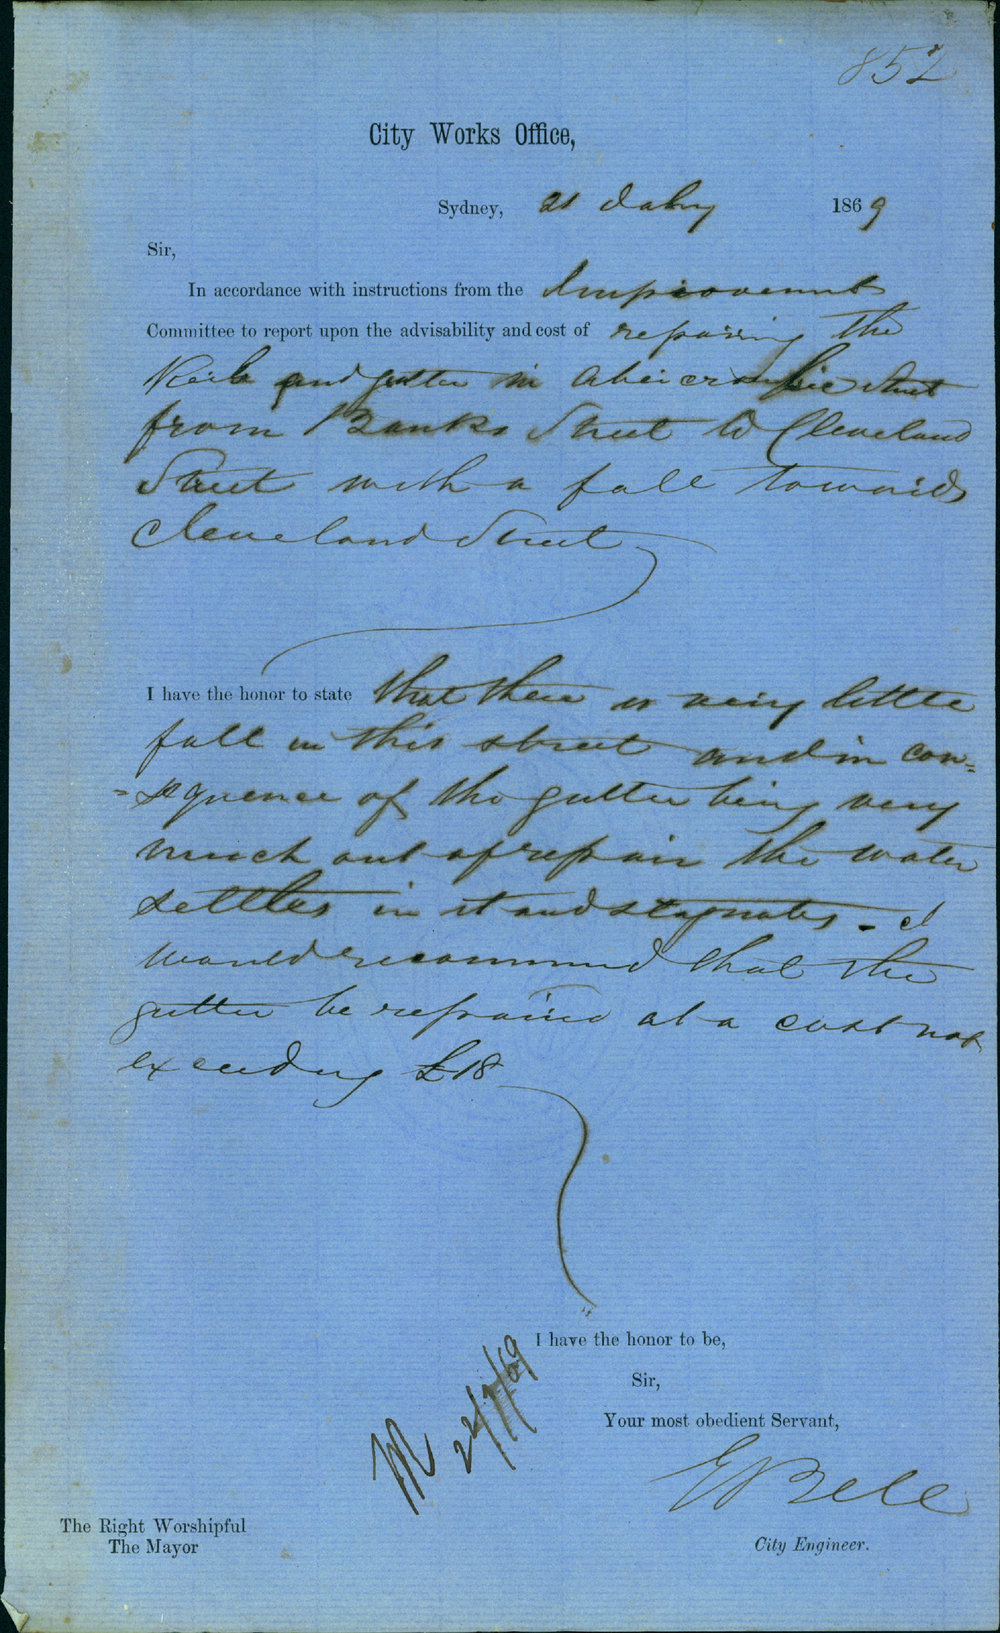 852
City Works Office,
Sydney, 21 July 1869
Sir,
In accordance with instructions from the Improvement
Committee to report upon the advisability and cost of repairing the
Kerb and gutter in Abercrombie Street
from Banks Street to Cleveland
Street with a fall towards
Cleveland Street
I have the honor to state that there is very little
fall in this street and in con=
=sequence of the gutter being very
much out of repair the water
settles in it and stagnates - I
would recommend that the
gutter be repaired at a cost not
exceeding £18
I have the honor to be,
Sir,
Your most obedient Servant,
M 22/7/69
E Bell
The Right Worshipful
The Mayor
City Engineer.